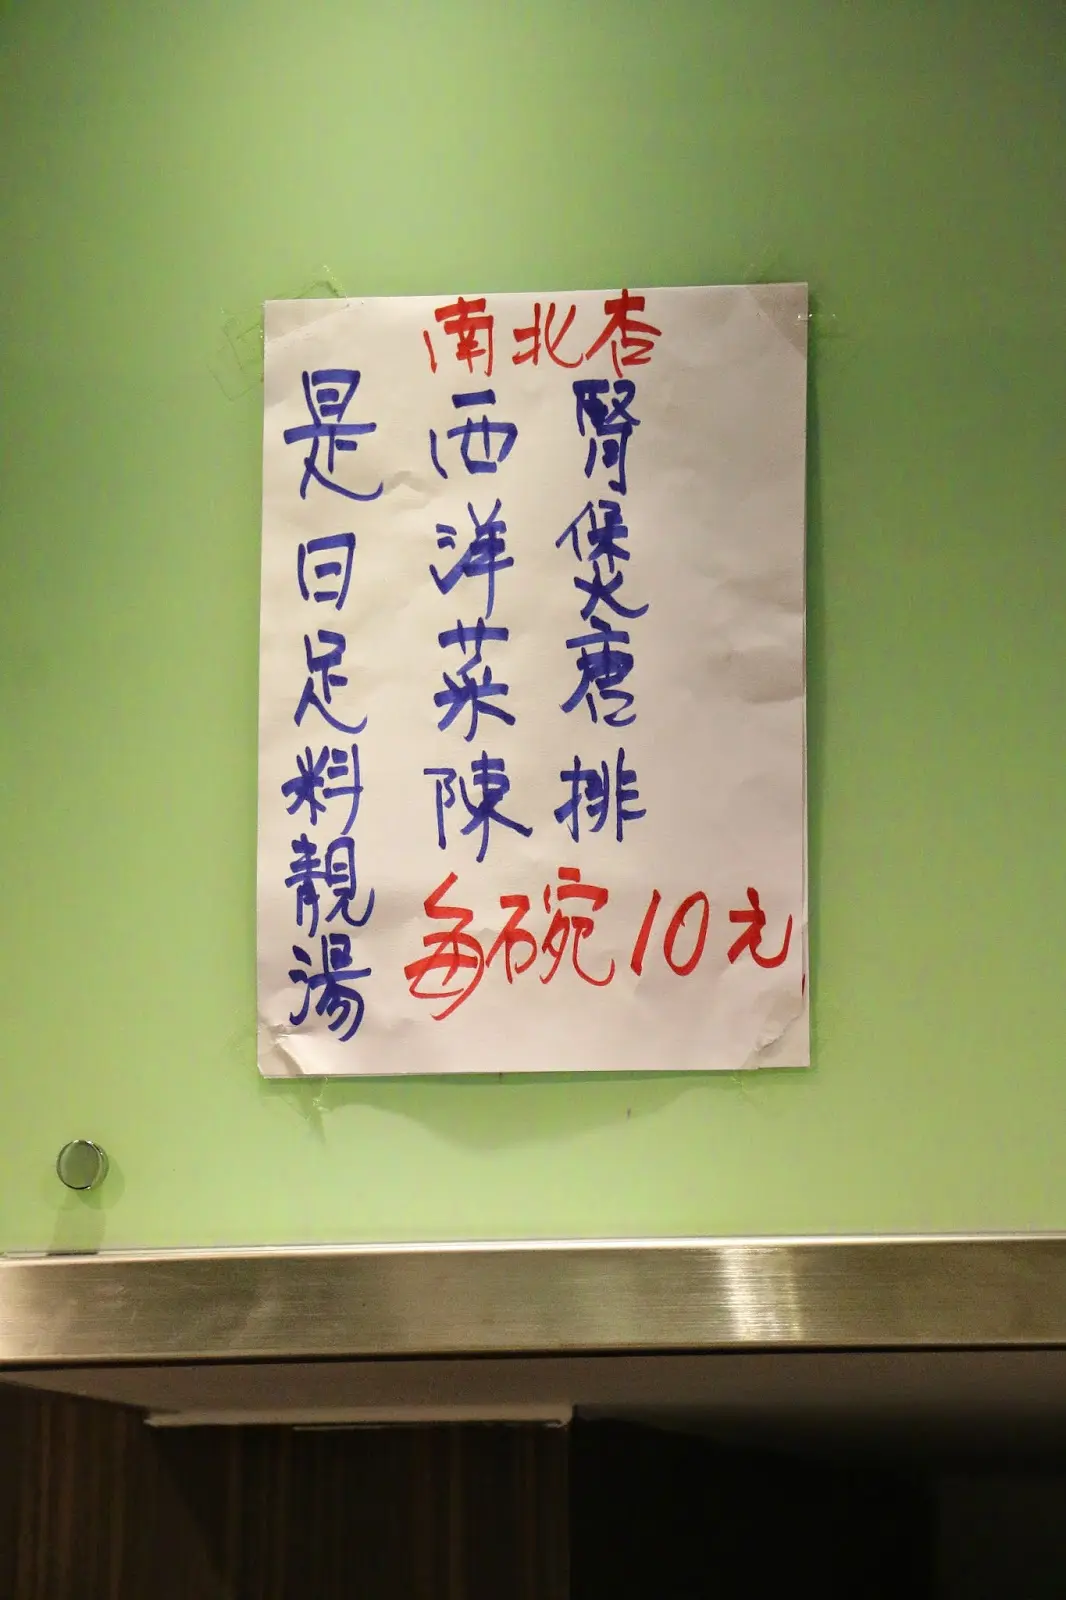 南北杏
是日足料靚湯
西洋菜陳
腎煲唐排
每碗10元